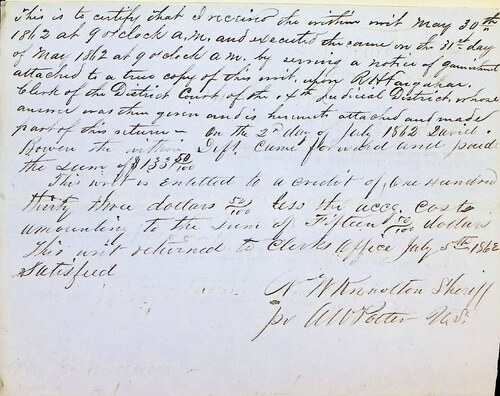 This is to certify that I received the within writ May 30th
1862 at 9 o'clock A.M. and executed the same on the 31st day
of May 1862 at 9 o'clock a.m. by serving a notice of garnishment
attached to a true copy of this writ, upon R H Farquhar.
Clerk of the District Court of the 4th Judicial District, whose
answer was then given and is herewith attached and made
part of this return - On the 2d day of July 1862 David
Bowen the within Deft. Came forward and paid
the sum of $133 50/100
This writ is entitled to a credit of, One hundred
thirty three dollars 50/100 less the accg. costs
amounting to the sum of Fifteen 50/100 dollars
This writ returned to Clerks office July 5th 1862
Satisfied
N. W. Knowlton Sheriff
pr A W Potter